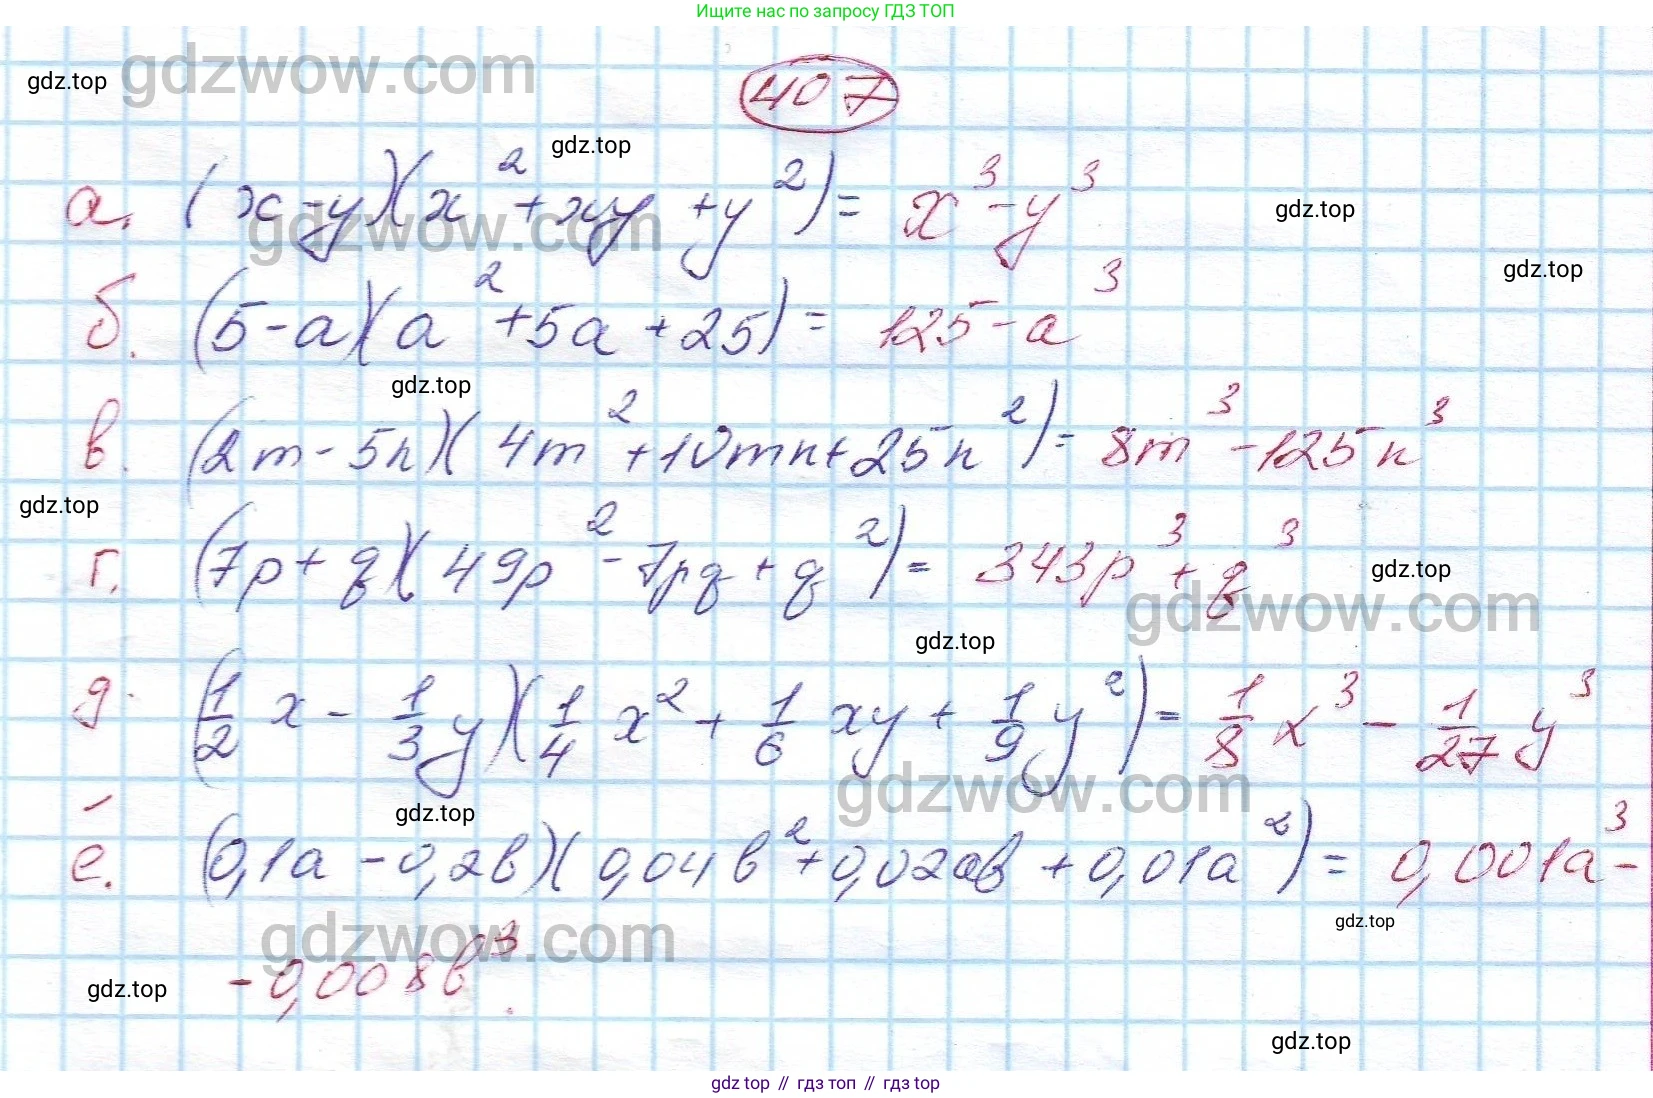 Ищите нас по запросу ГДЗ ТОП
gdz.top gdzwow.com
407
gdz.top
а. (x-y)(x²+xy+y²)= x³-y³
gdz.top
gdzwow.com
gdz.top
б. (5-a)(a²+5a+25)= 125-a³
gdz.top
в. (2m-5n)(4m²+10mn+25n²)= 8m³-125n³
gdz.top
г. (7p+q)(49p²-7pq+q²)= 343p³+q³
gdz.top
gdzwow.com
gdz.top
д. (1/2 x - 1/3 y)(1/4 x² + 1/6 xy + 1/9 y²)= 1/8 x³ - 1/27 y³
gdzwow.com
gdz.top
е. (0,1a-0,2в)(0,04в²+0,02aв+0,01a²)= 0,001a³-
gdz.top
gdzwow.com
-0,008в³.
gdz.top
gdz.top
gdz top // гдз топ // гдз top